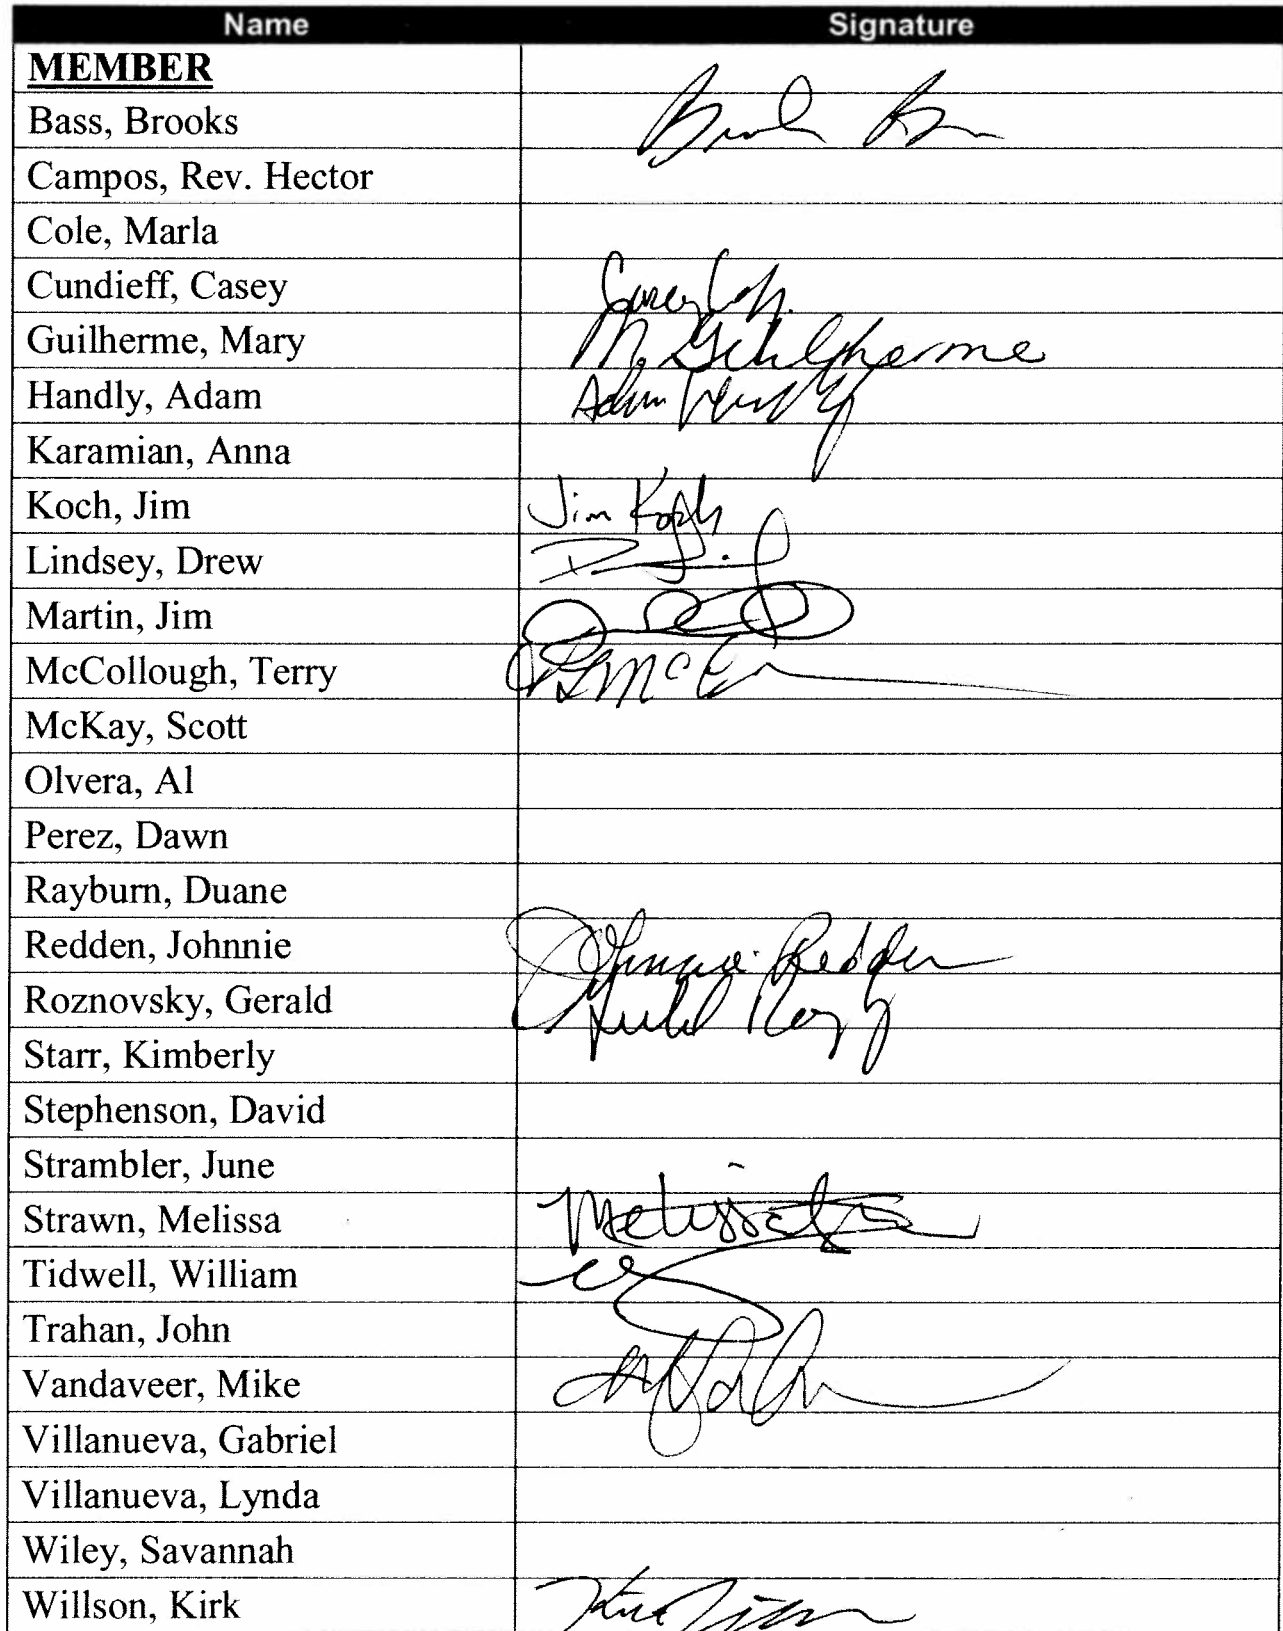 Name Signature
MEMBER
Bass, Brooks
Campos, Rev. Hector
Cole, Marla
Cundieff, Casey Casey
Guilherme, Mary M. Guilherme
Handly, Adam Adam Handly
Karamian, Anna
Koch, Jim Jim Koch
Lindsey, Drew
Martin, Jim
McCollough, Terry
McKay, Scott
Olvera, Al
Perez, Dawn
Rayburn, Duane
Redden, Johnnie Johnnie Redden
Roznovsky, Gerald
Starr, Kimberly
Stephenson, David
Strambler, June
Strawn, Melissa Melissa
Tidwell, William
Trahan, John
Vandaveer, Mike
Villanueva, Gabriel
Villanueva, Lynda
Wiley, Savannah
Willson, Kirk